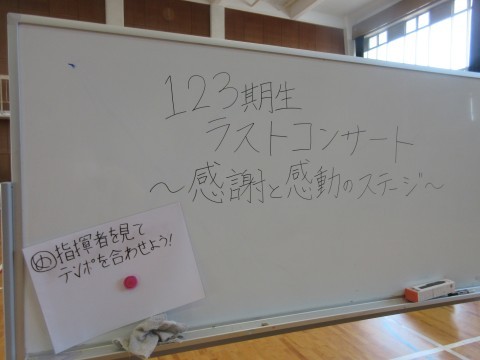 123期生
ラストコンサート
~感謝と感動のステージ~
め指揮者を見て
テンポを合わせよう!